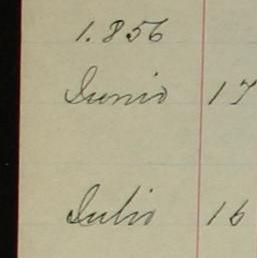 1.856
Junio 17
Julio 16